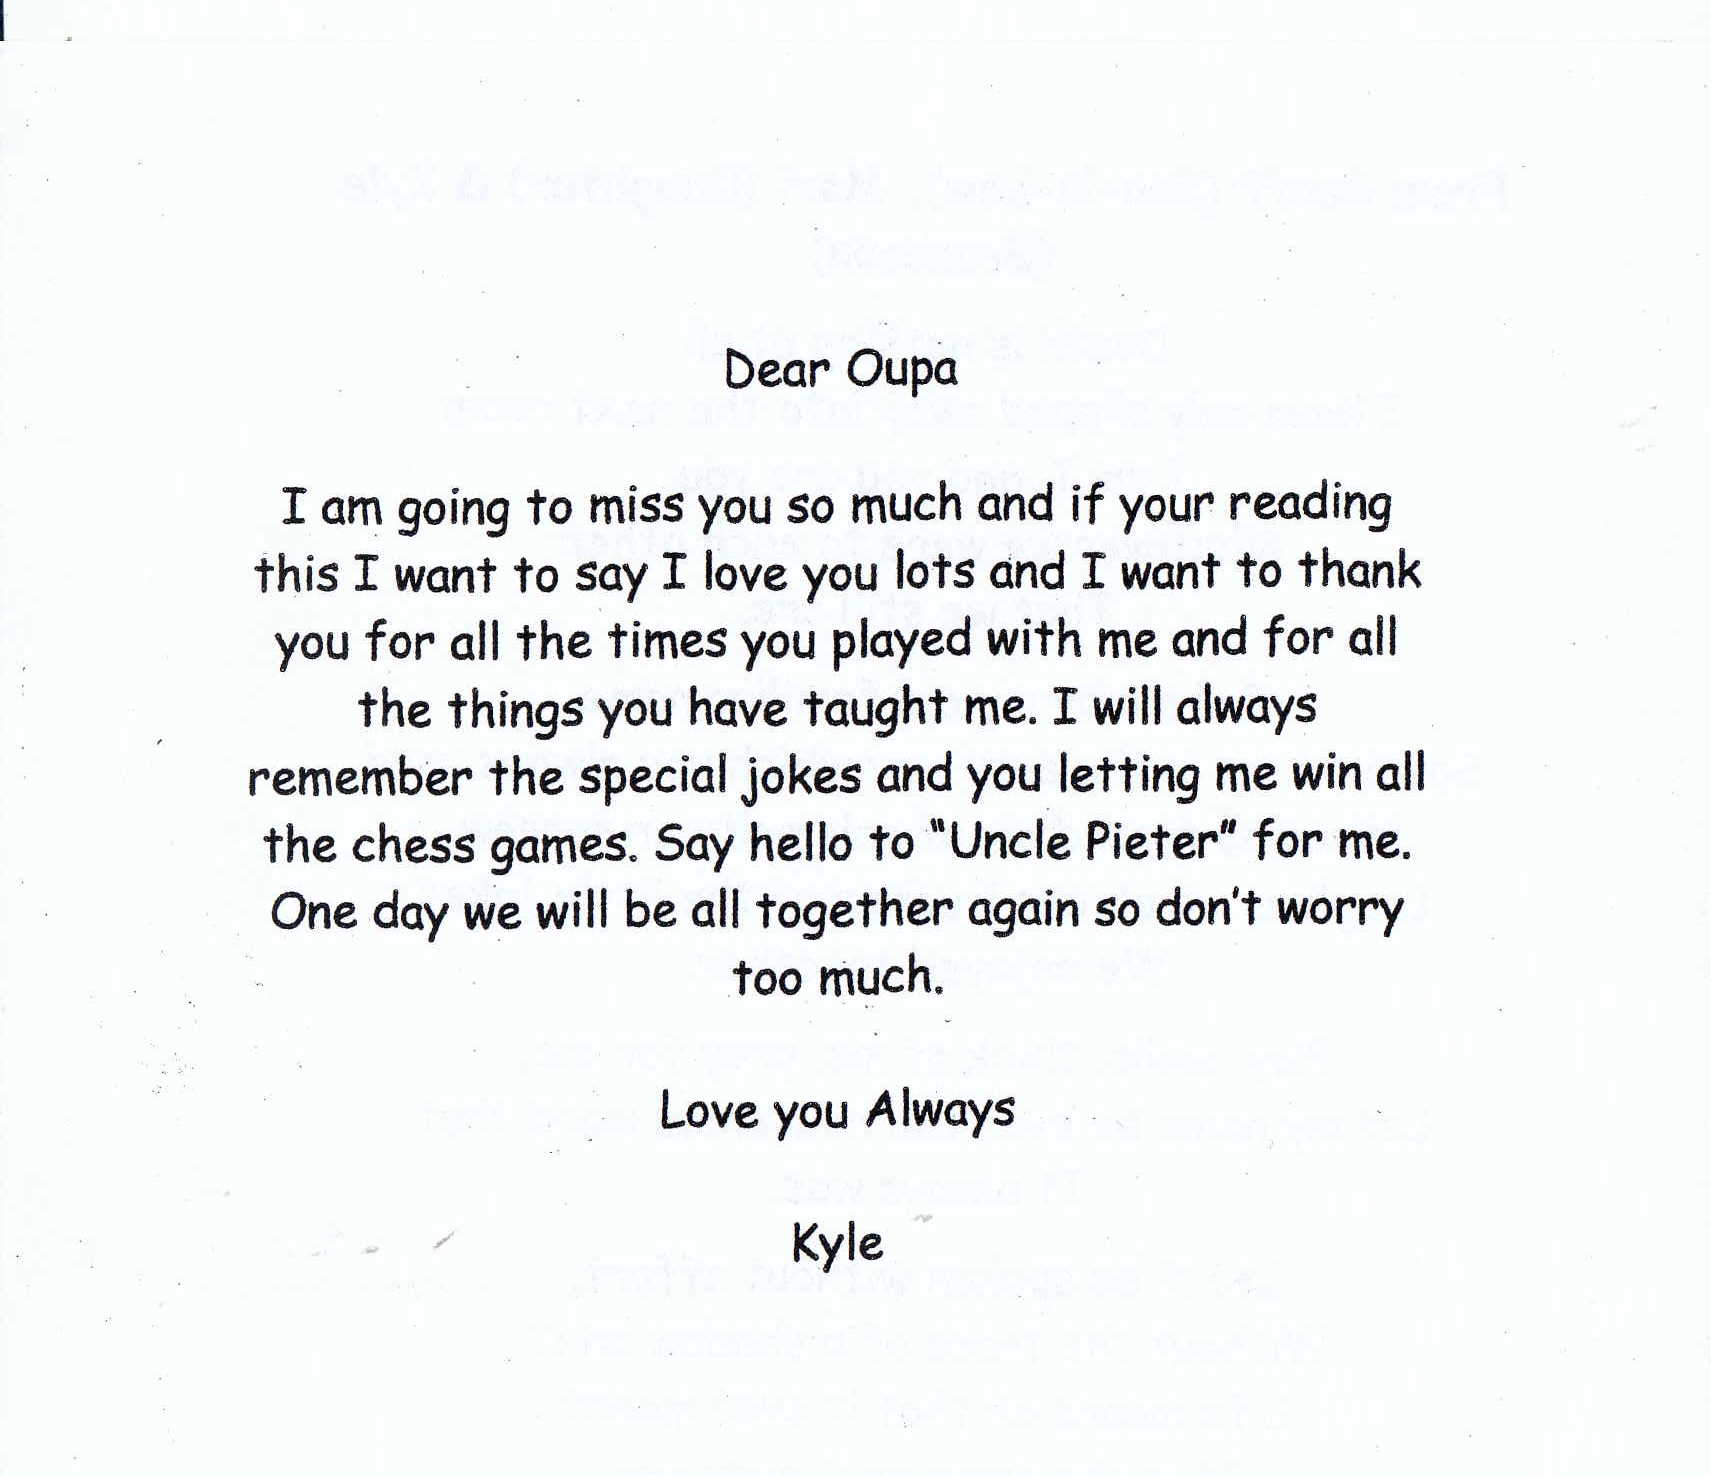 Dear Oupa
I am going to miss you so much and if your reading
this I want to say I love you lots and I want to thank
you for all the times you played with me and for all
the things you have taught me. I will always
remember the special jokes and you letting me win all
the chess games. Say hello to "Uncle Pieter" for me.
One day we will be all together again so don't worry
too much.
Love you Always
Kyle